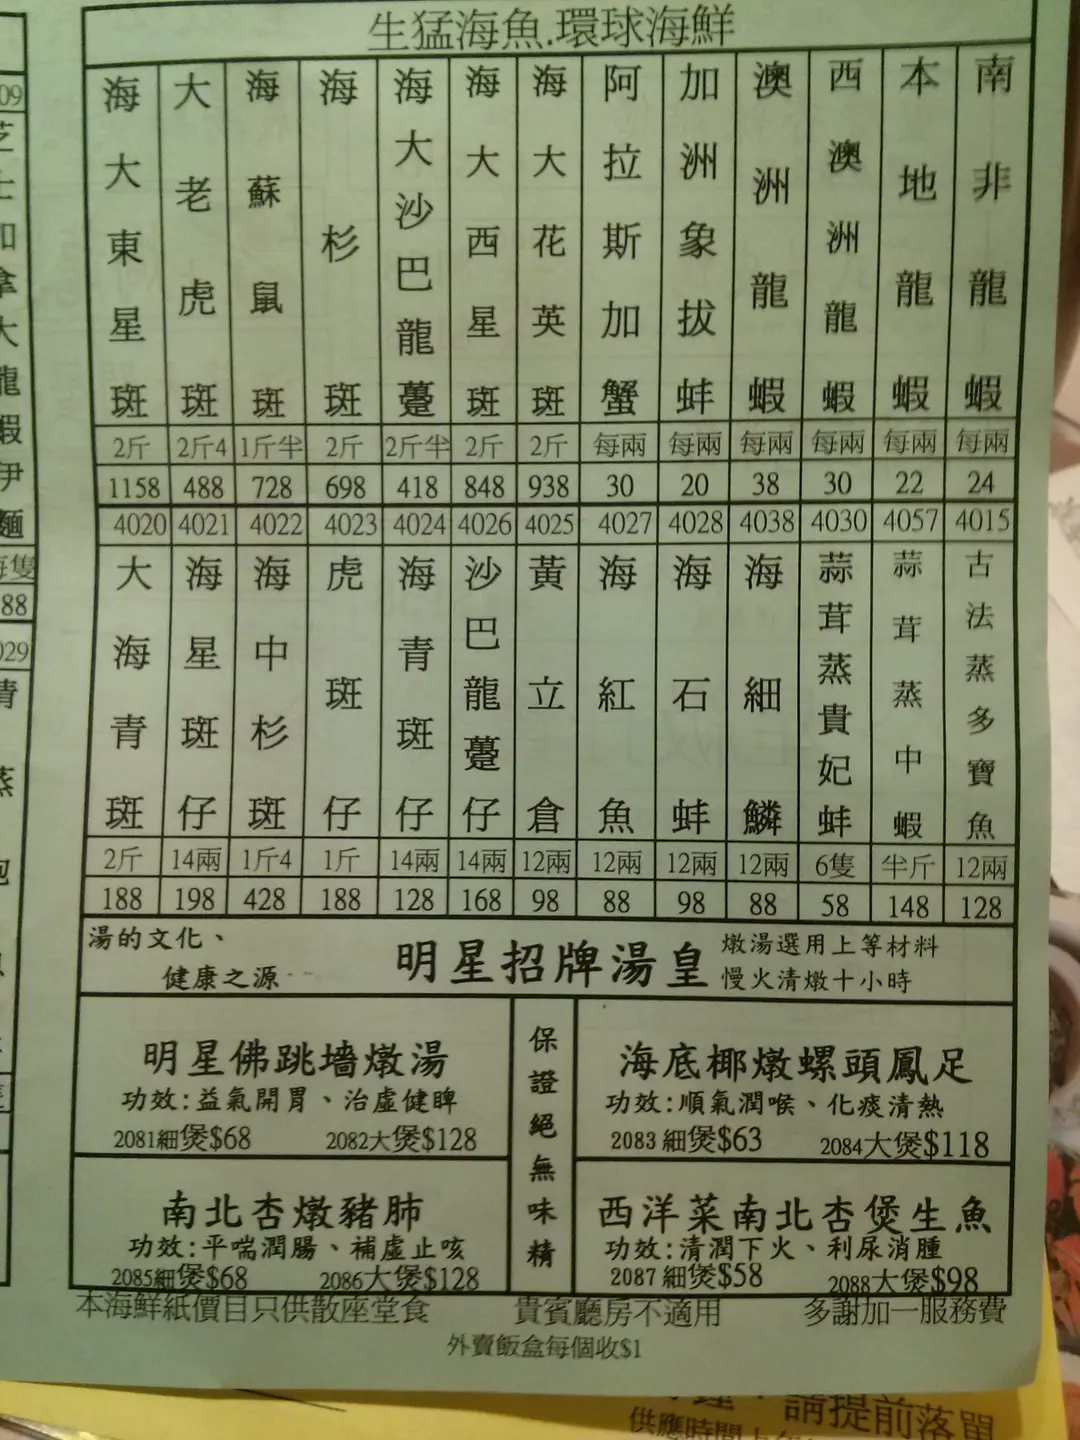 生猛海魚.環球海鮮
海大東星斑
大老虎斑
海蘇鼠斑
海杉斑
海大沙巴龍躉
海大西星斑
海大花英斑
阿拉斯加蟹
加洲象拔蚌
澳洲龍蝦
西澳洲龍蝦
本地龍蝦
南非龍蝦
2斤 2斤4 1斤半 2斤 2斤半 2斤 2斤 每兩 每兩 每兩 每兩 每兩 每兩
1158 488 728 698 418 848 938 30 20 38 30 22 24
4020 4021 4022 4023 4024 4026 4025 4027 4028 4038 4030 4057 4015
大海青斑
海星斑仔
海中杉斑
虎斑仔
海青斑仔
沙巴龍躉仔
黃立倉
海紅魚
海石蚌
海細鱗
蒜茸蒸貴妃蚌
蒜茸蒸中蝦
古法蒸多寶魚
2斤 14兩 1斤4 1斤 14兩 14兩 12兩 12兩 12兩 12兩 6隻 半斤 12兩
188 198 428 188 128 168 98 88 98 88 58 148 128
湯的文化、
健康之源
明星招牌湯皇
燉湯選用上等材料
慢火清燉十小時
明星佛跳墻燉湯
功效:益氣開胃、治虛健睥
2081細煲$68 2082大煲$128
保證絕無味精
海底椰燉螺頭鳳足
功效:順氣潤喉、化痰清熱
2083 細煲$63 2084大煲$118
南北杏燉豬肺
功效:平喘潤腸、補虛止咳
2085細煲$68 2086大煲$128
西洋菜南北杏煲生魚
功效:清潤下火、利尿消腫
2087 細煲$58 2088大煲$98
本海鮮紙價目只供散座堂食 貴賓廳房不適用 多謝加一服務費
外賣飯盒每個收$1
09
芝士加拿大龍蝦伊麵
每隻
88
029
請提前落單
供應時間上